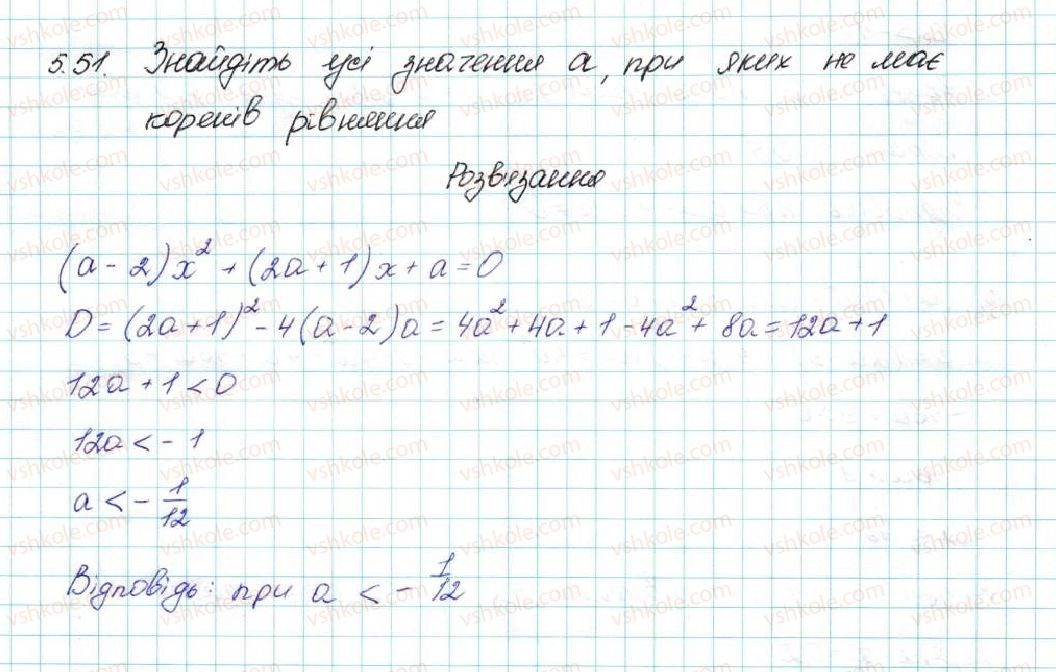 5.51. Знайдіть усі значення a, при яких не має
коренів рівняння
Розв'язання
(a - 2)x² + (2a + 1)x + a = 0
D = (2a + 1)² - 4(a - 2)a = 4a² + 4a + 1 - 4a² + 8a = 12a + 1
12a + 1 < 0
12a < - 1
a < - 1/12
Відповідь: при a < - 1/12